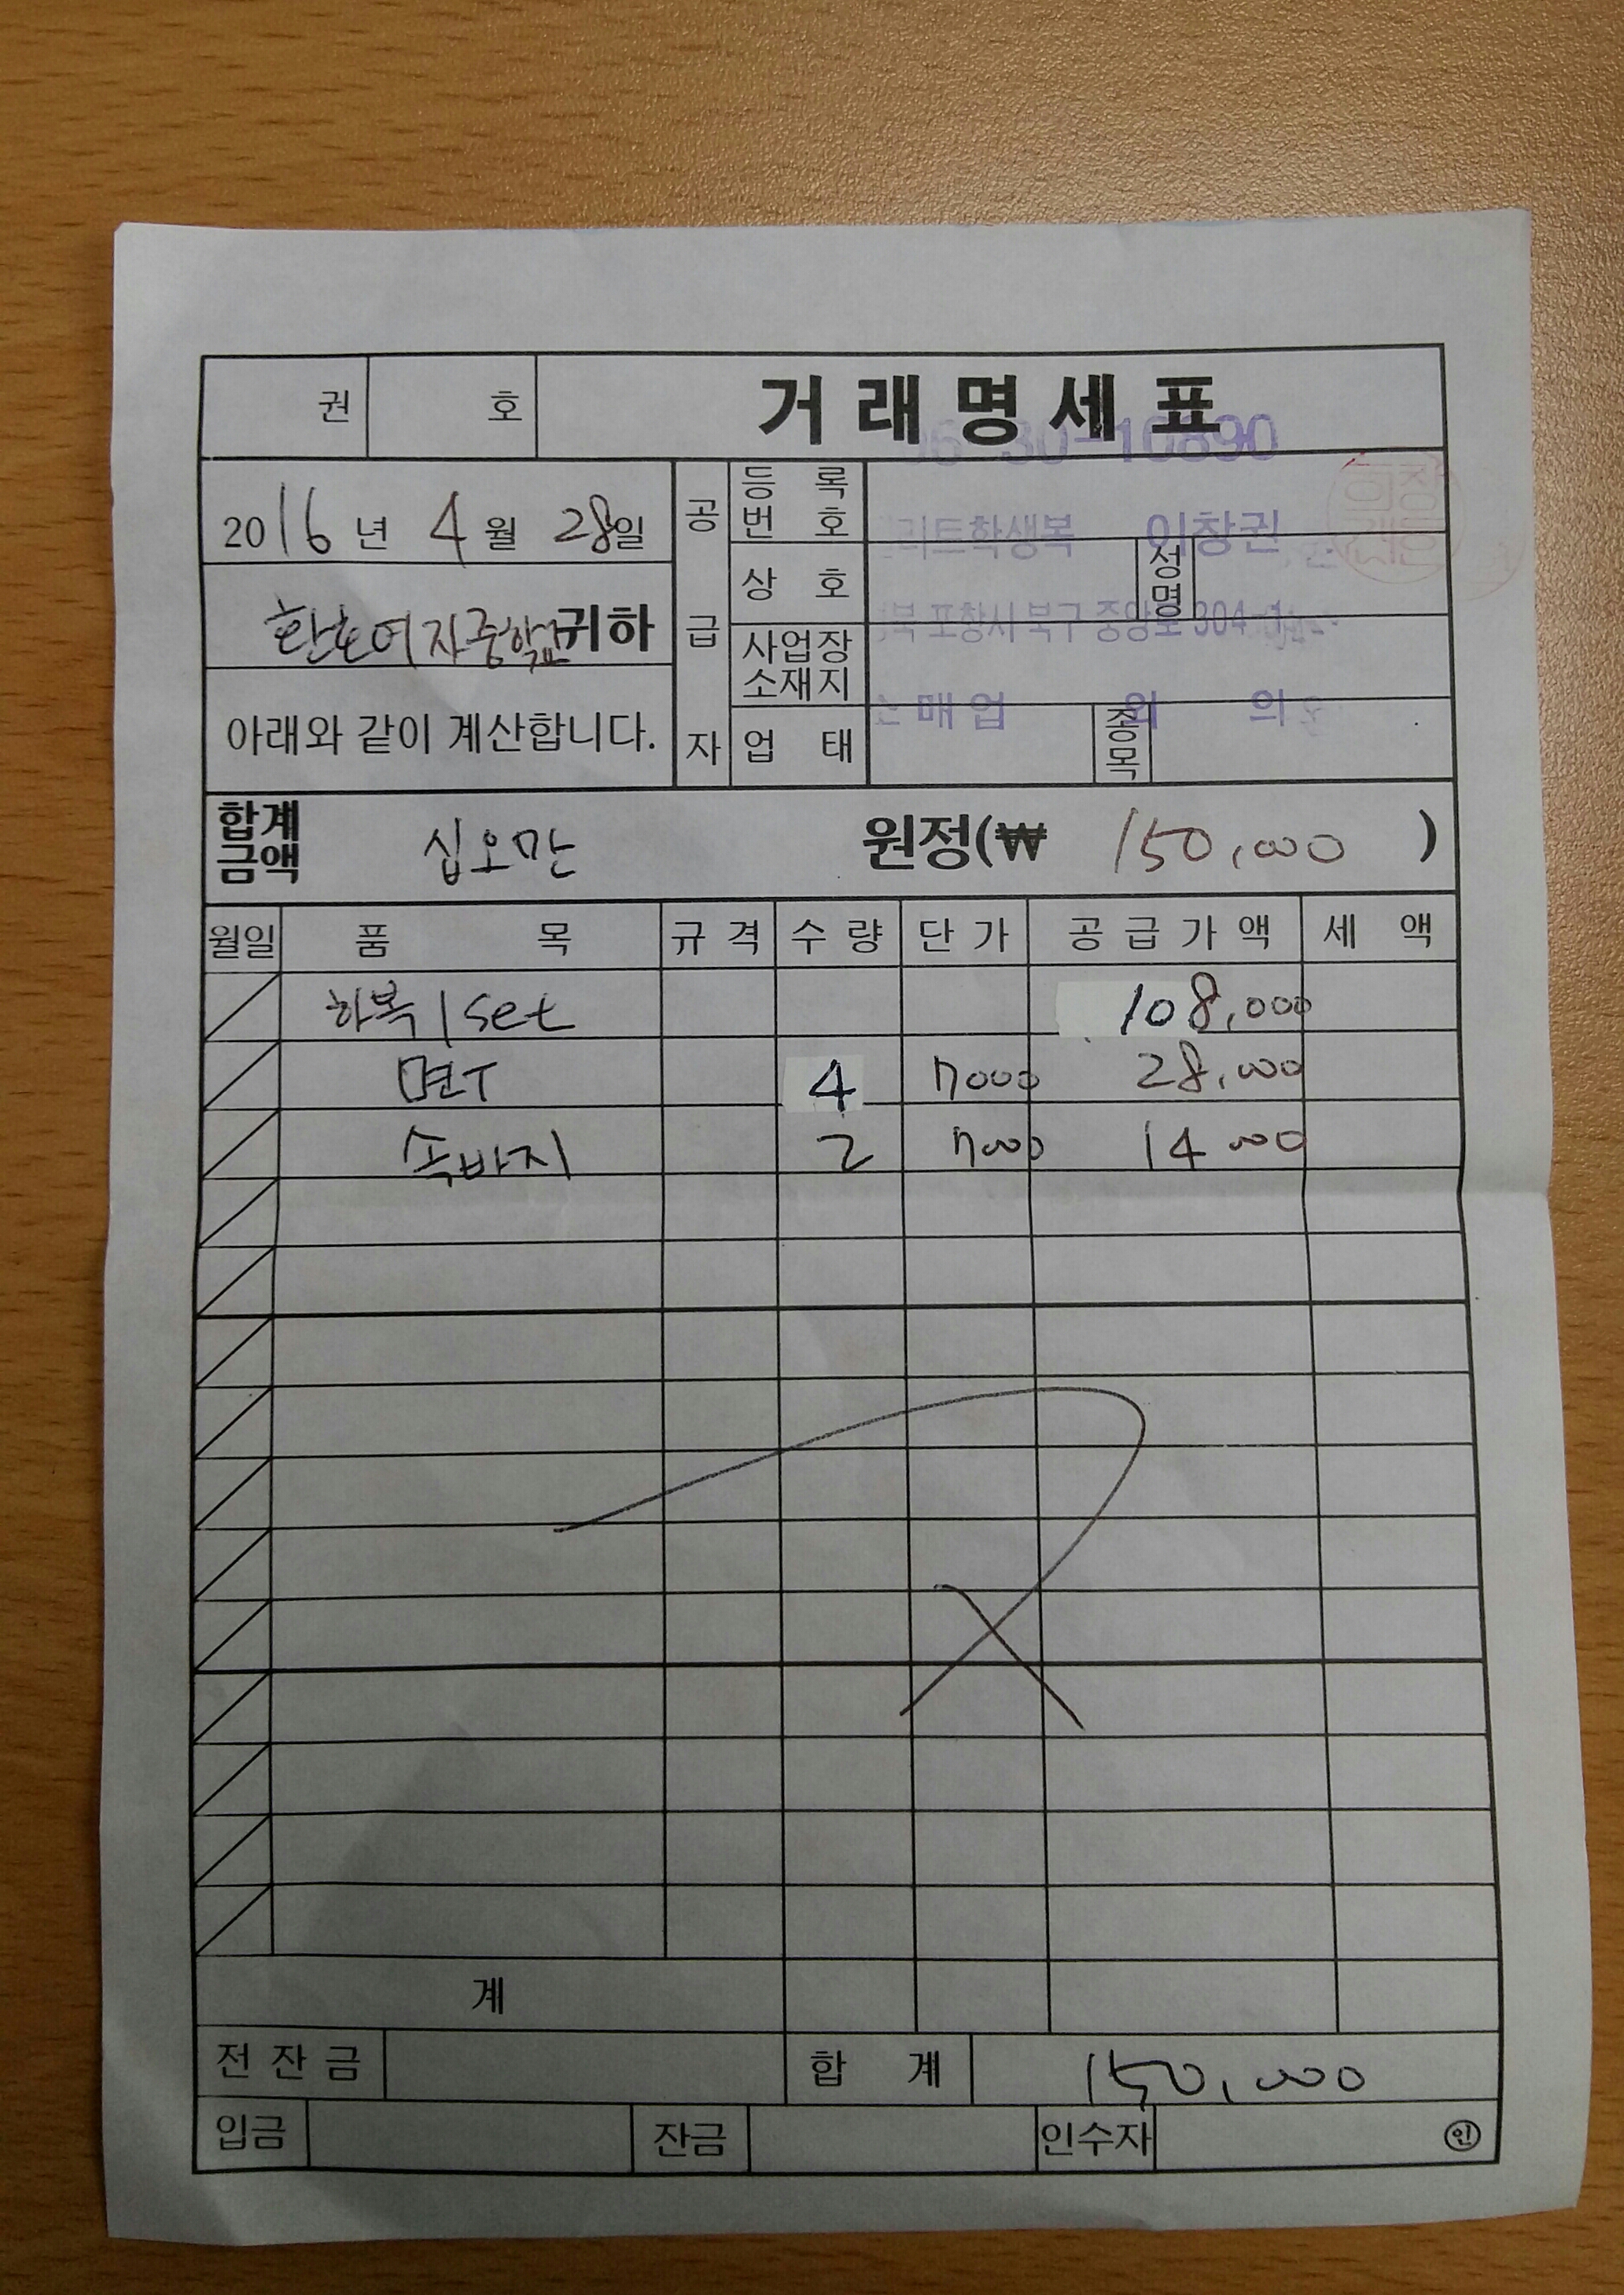 권 호 거래명세표
06-30-10890
2016년 4월 28일
환호여자중학교귀하
아래와 같이 계산합니다.
공급자
등록번호
리트학생복 이창권
상호 성명
북 포항시 북구 중앙로 304-1
사업장소재지
소매업 외 의
업태 종목
합계금액 십오만 원정(₩ 150,000 )
월일 품목 규격 수량 단가 공급가액 세액
하복 1set 108,000
면T 4 7000 28,000
속바지 2 7000 14000
계
전잔금 합계 150,000
입금 잔금 인수자 ㊞